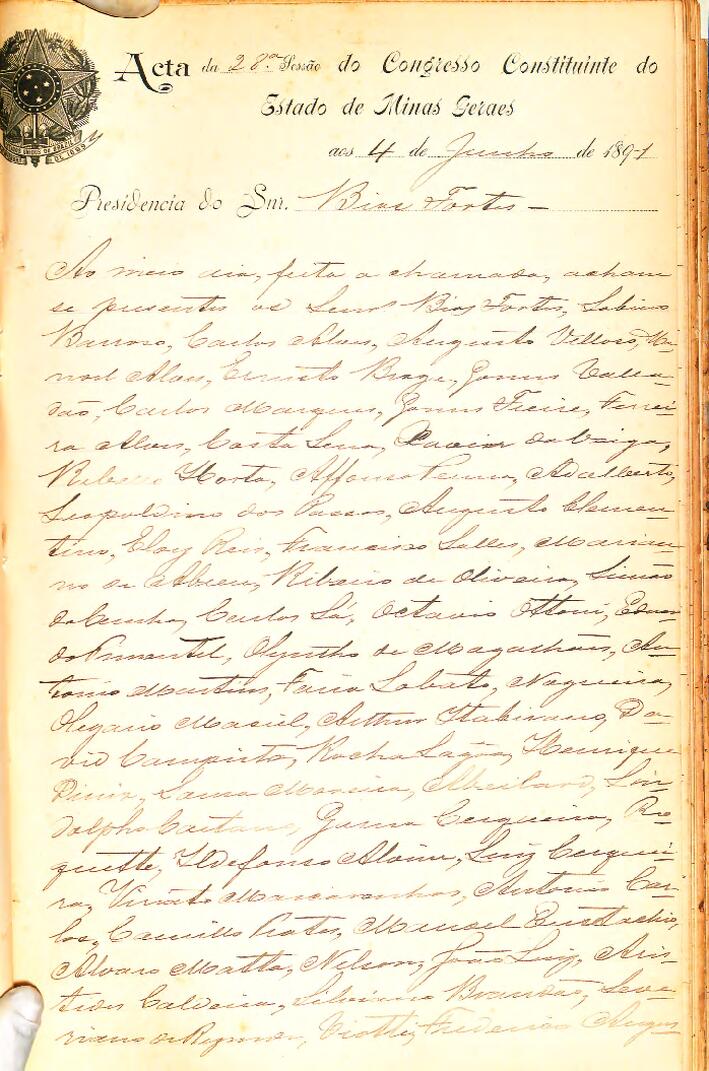 Acta da 28ª Sessão do Congresso Constituinte do
Estado de Minas Geraes
aos 4 de Junho de 1891
Presidencia do Snr. Bias Fortes -
Ao meio dia, feita a chamada, acham
se presentes os Senrs Bias Fortes, Sabino
Barroso, Carlos Alves, Augusto Velloso, Ma-
noel Alves, Ernesto Braga, Gomes Valla-
dão, Carlos Marques, Gomes Freire, Ferrei-
ra Alves, Costa Sena, Xavier da Veiga,
Rebello Horta, Affonso Penna, Adalberto,
Leopoldino dos Passos, Augusto Clemen-
tino, Eloy Reis, Francisco Salles, Maria-
no de Abreu, Ribeiro de Oliveira, Simão
da Cunha, Carlos Sá, Octavio Ottoni, Eduar-
do Pimentel, Olyntho de Magalhães, An-
tonio Martins, Faria Lobato, Nogueira,
Olegario Maciel, Arthur Itabirano, Da-
vid Campista, Rocha Lagôa, Henrique
Diniz, Moreira, Abeilard, Lin-
dolpho Caetano, Gama Cerqueira, Ro-
quette, Ildefonso Alvim, Luiz Cerquei-
ra, Viriato Mascarenhas, Antonio Car-
los, Camillo Prates, Manoel Eustachio,
Alvaro Matta, Nelson, João Luiz, Aris-
tides Caldeira, Silviano Brandão, Seve-
riano de Rezende, Viotti, Frederico Augus